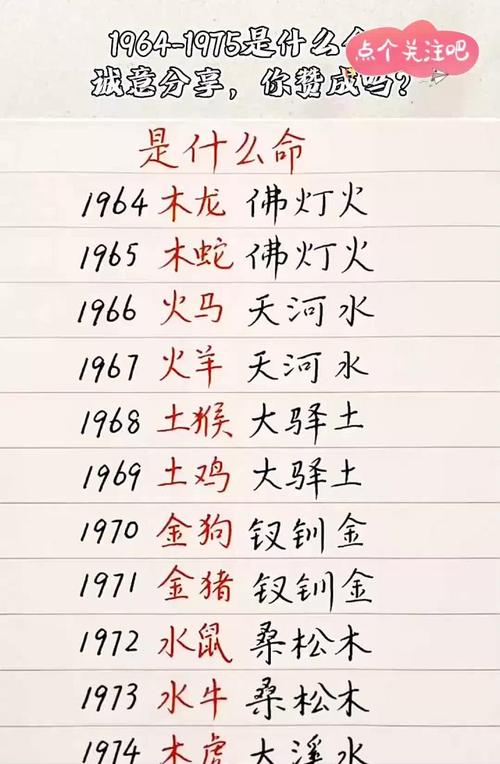 1964-1975是什么
点个关注吧
诚意分享，你赞成吗？
是什么命
1964 木龙 佛灯火
1965 木蛇 佛灯火
1966 火马 天河水
1967 火羊 天河水
1968 土猴 大驿土
1969 土鸡 大驿土
1970 金狗 钗钏金
1971 金猪 钗钏金
1972 水鼠 桑松木
1973 水牛 桑松木
1974 木虎 大溪水